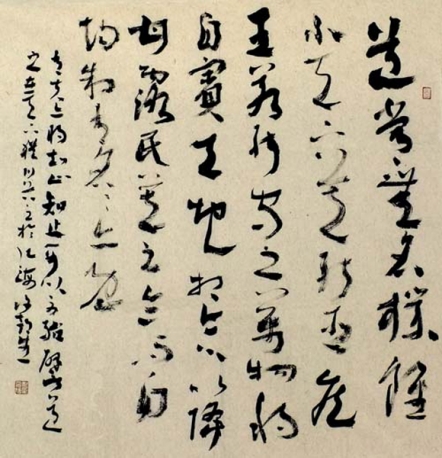 道常無名樸雖
小天下莫能臣侯
王若能守之萬物將
自賓天地相合以降
甘露民莫之令而自
均始制有名名亦既
有夫亦將知止知止以不殆譬道
之在天下猶川谷之於江海